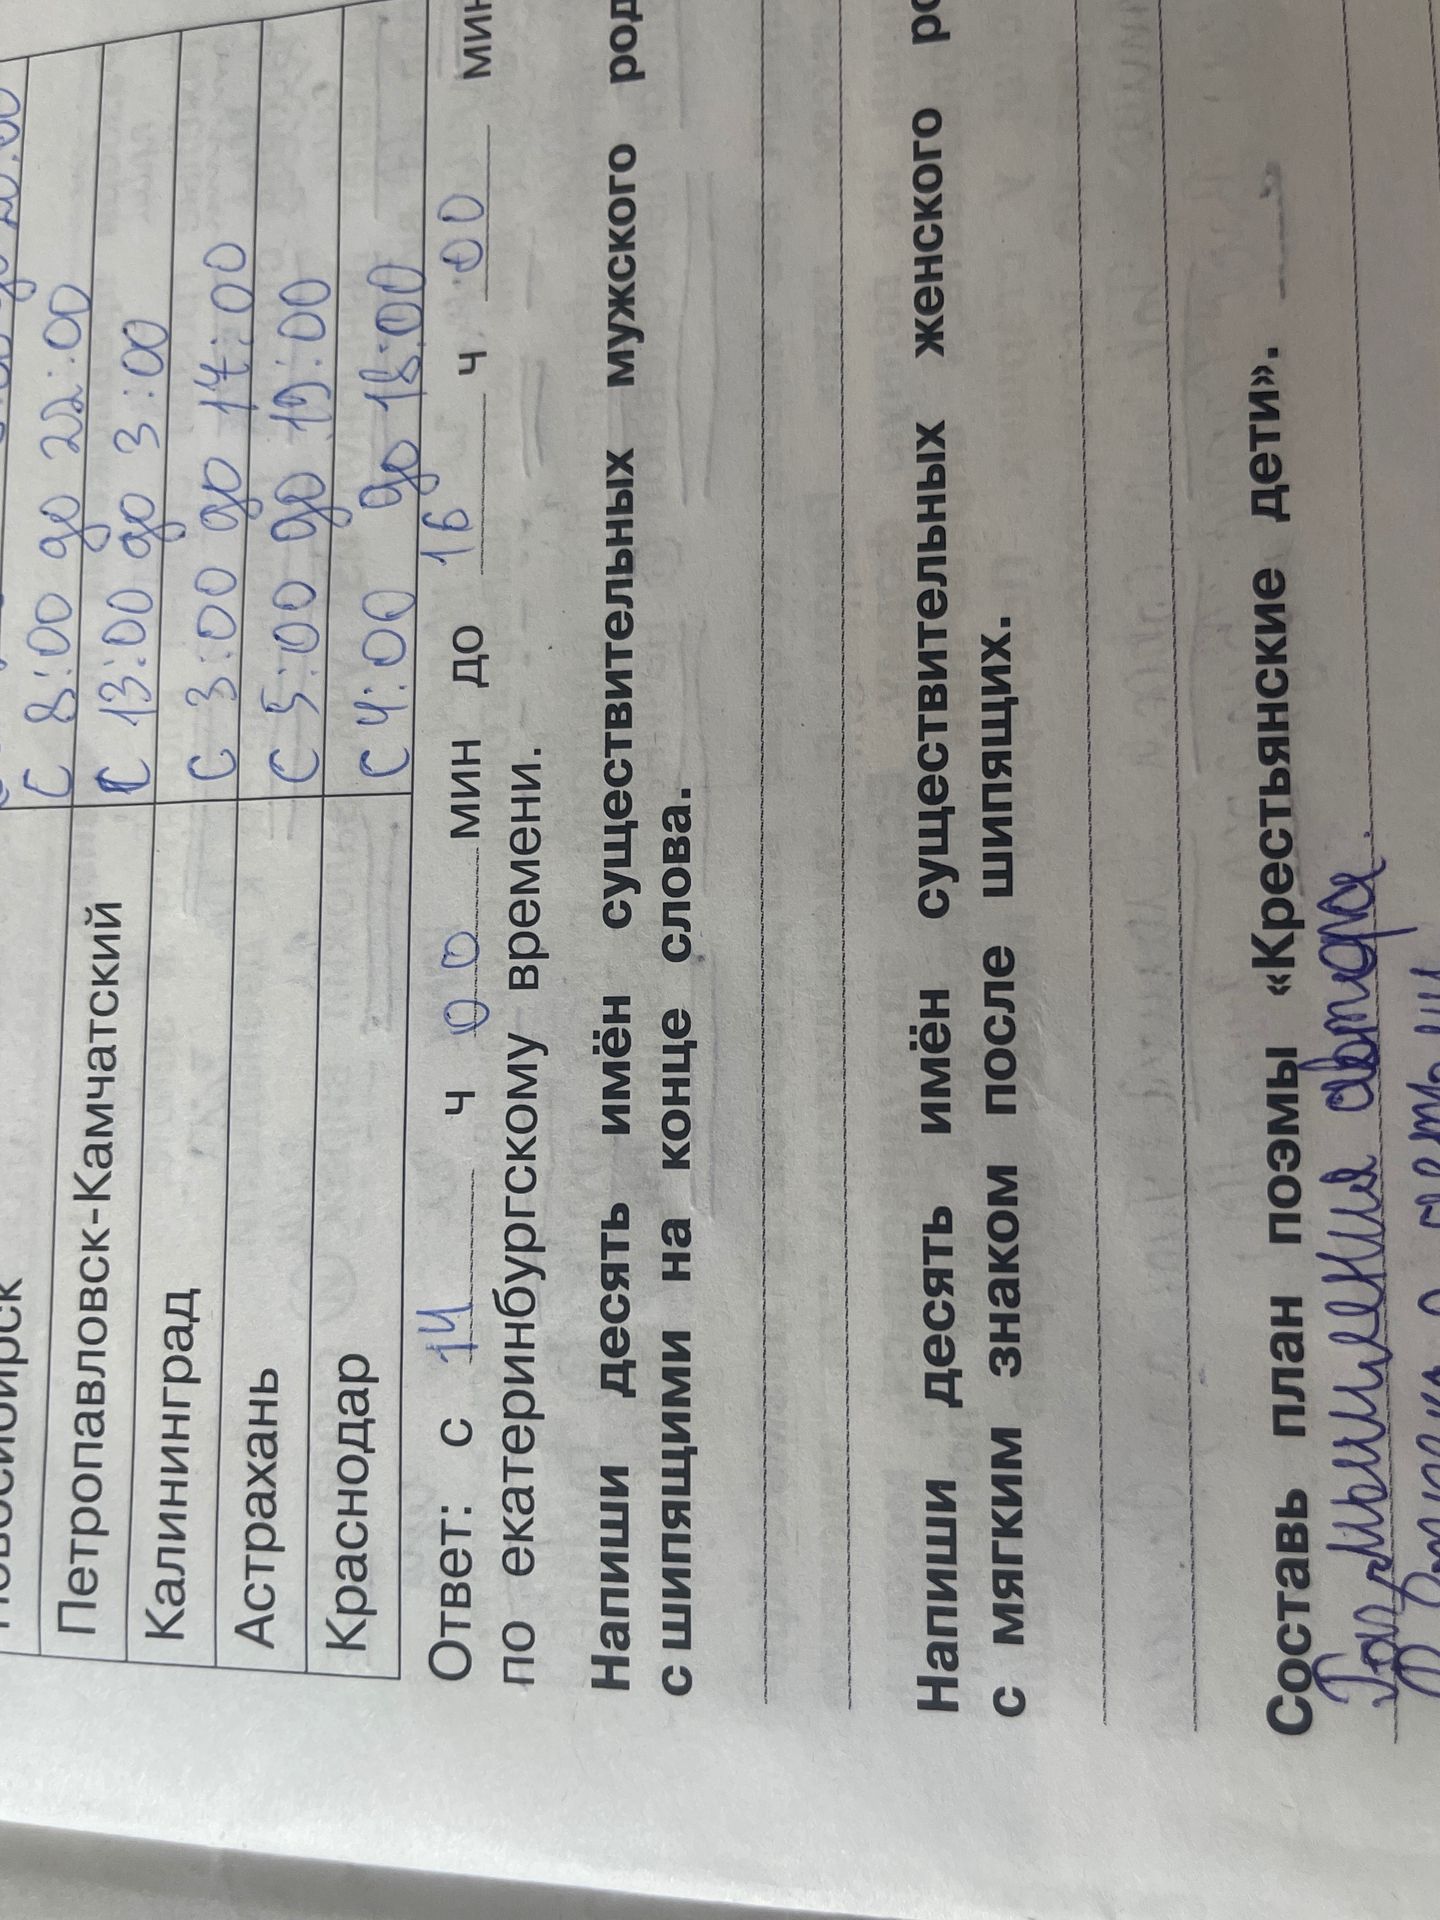 Петропавловск-Камчатский с 8:00 до 22:00
Калининград с 13:00 до 3:00
Астрахань с 3:00 до 17:00
Краснодар с 5:00 до 19:00
с 4:00 до 18:00
Ответ: с 14 ч 00 мин до 16 ч 00 мин
по екатеринбургскому времени.
Напиши десять имён существительных мужского род
с шипящими на конце слова.
Напиши десять имён существительных женского ро
с мягким знаком после шипящих.
Составь план поэмы «Крестьянские дети».
Размышления автора